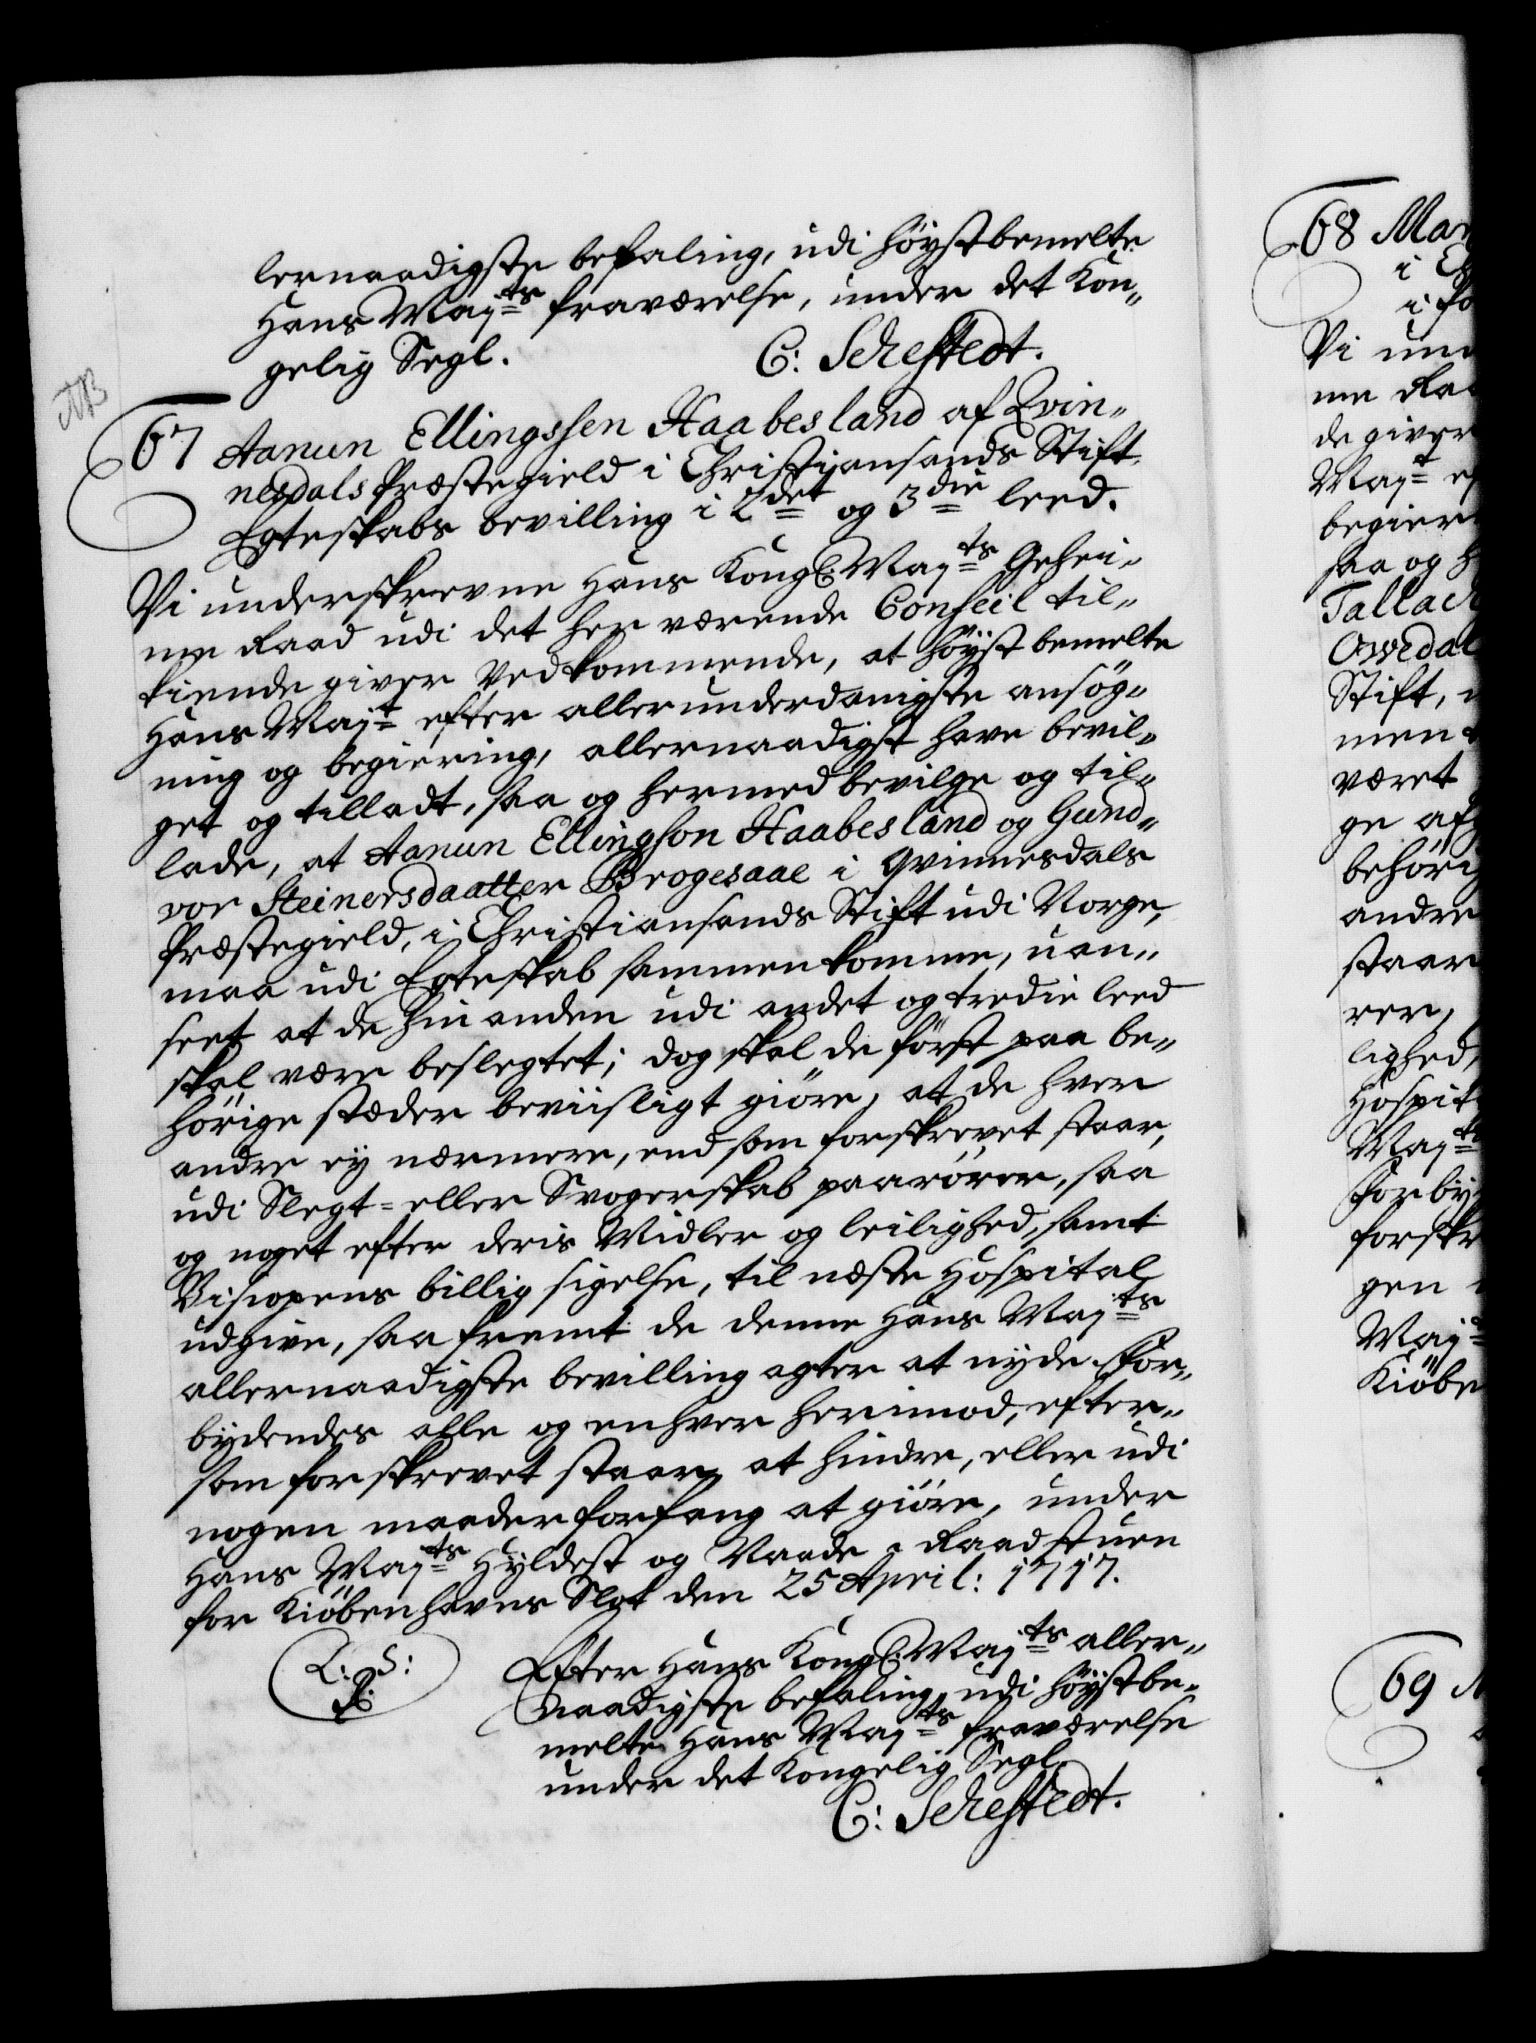 lernaadigste befaling, udi høystbemelte
Hans Maj:ts fraværelse, under det Kon-
gelig Segl.
C: Sehestedt.
NB
67 Aanun Ellingssen Haabesland af Qvin-
nesdals Præstegield i Christiansands Stift
Egteskabs bevilling i 2det og 3die leed.
Vi underskrevne Hans Kongl: Maj:ts Gehei-
me Raad udi det her værende Conseil til-
kiende giver Vedkommende, at høyst bemelte
Hans Maj:t efter allerunderdanigste ansøg-
ning og begiering, allernaadigst have bevil-
get og tilladt, saa og hermed bevilge og til-
lade, at Aanun Ellingson Haabesland og Gund-
vor Steinersdaatter Brogesaae i Qvinnesdals
Præstegield, i Christiansands Stift udi Norge,
maa udi Egteskab sammenkomme, uan-
seet at de hinanden udi andet og tredie leed
skal være beslegtet; dog skal de først paa be-
hørige stæder beviisligt giøre, at de hver
andre ey nærmere, end som forskrevet staar,
udi Slegt- eller Svogerskab paarører, saa
og noget efter deris Midler og leilighed, samt
Biscopens billig sigelse, til næste Hospital
udgive, saa fremt de denne Hans Maj:ts
allernaadigste bevilling agter at nyde. For-
bydendes alle og enhver herimod, efter-
som forskrevet staar, at hindre, eller udi
nogen maader forfang at giøre, under
Hans Maj:ts Hyldest og Naade. Raadstuen
for Kiøbenhavns Slot den 25 April: 1717.
L: S:
R.
Efter Hans Kongl: Maj:ts aller-
naadigste befaling, udi høystbe-
melte Hans Maj:ts fraværelse
under det Kongelig Segl
C: Sehestedt.
68 Mar
i
Vi un
me Raa
de giver
Maj:t ef
begier
saa og h
Tallack
Oyedal
Stift,
men
været
ge af
behørig
andre
staar
rer,
lighed,
Hospit
Maj:ts
Forby
forskr
gen
Maj:ts
Kiøbe
69